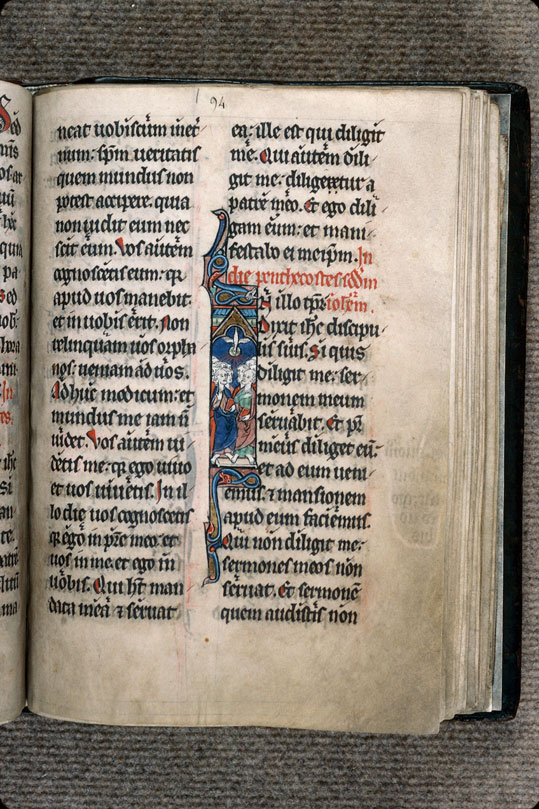 94
neat uobiscum inet
num: spm ueritatis
quem mundus non
potest accipere. quia
non uidit eum nec
scit eum. Vos autem
cognoscetis eum: qr
apud uos manebit.
et in uobis erit. Non
relinquam uos orpha
nos: ueniam ad uos.
Adhuc modicum: et
mundus me iam n
uidet. Vos autem ui
detis me: qr ego uiuo
et uos uiuetis. In il
lo die uos cognoscetis
qr ego in pre meo: et
uos in me. et ego in
uobis. Qui ht man
data mea ⁊ seruat
ea: ille est qui diligit
me. Qui autem dili
git me: diligetur a
patre meo. Et ego dili
gam eum: et mani
festabo ei meipm. In
die penthecostes. sdm
In illo tpr. iohem.
Dixit ihc discipu
lis suis. Si quis
diligit me: ser
monem meum
seruabit. Et pr
meus diliget eu:
et ad eum ueni
emus. ⁊ mansionem
apud eum faciemus.
Qui non diligit me:
sermones meos non
seruat. Et sermone
quem audistis non